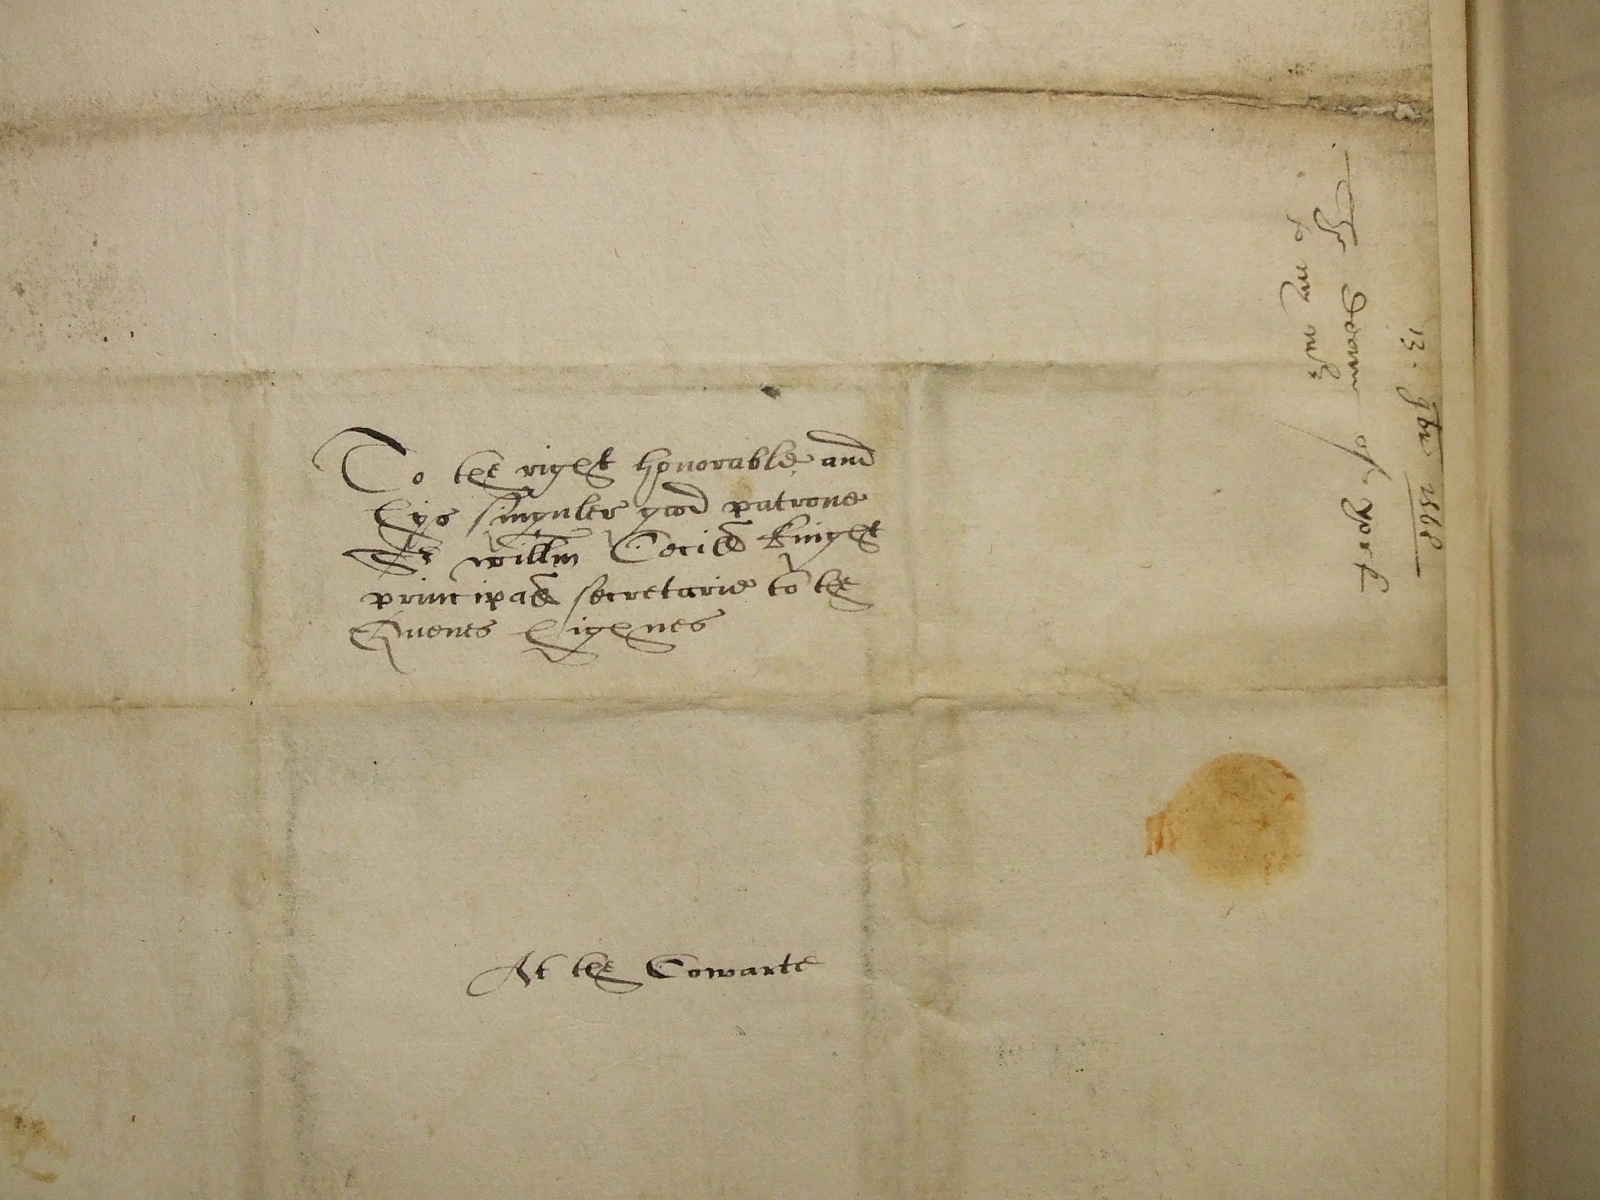 To the right honorable and
hys singuler good patrone
Sr willm Cecill knight
principall secretarie to the
Quenes highnes
At the Cowarte
13. 9br 1568
The Deane of York
to my mr